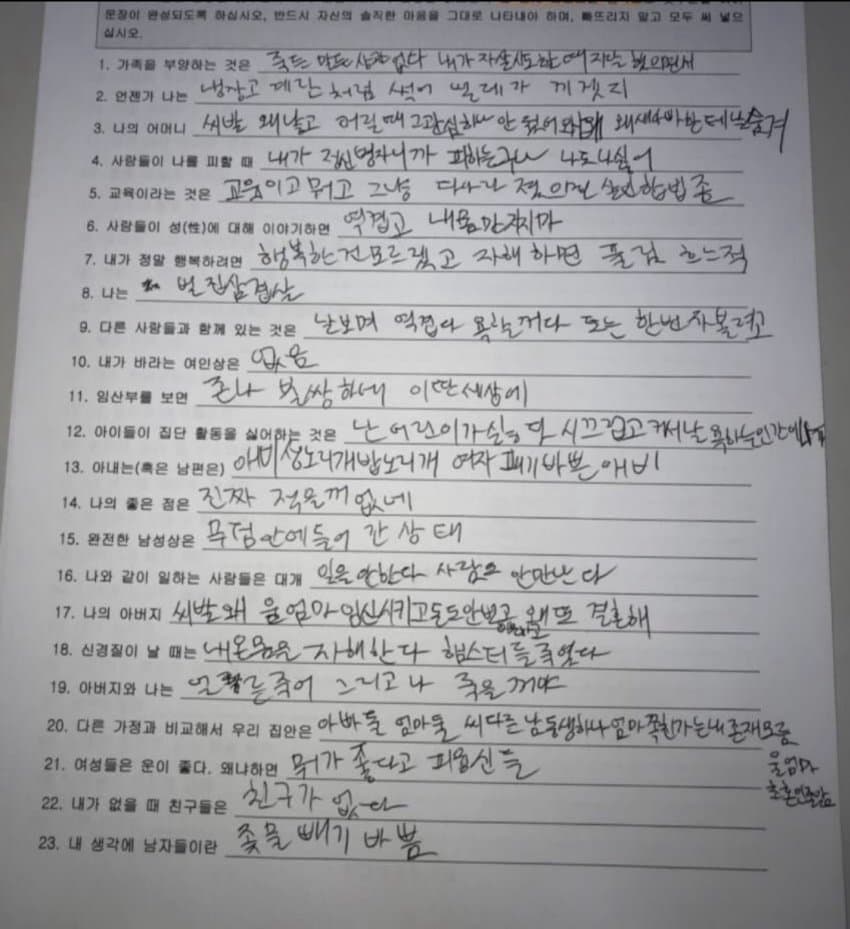 문장이 완성되도록 하십시오. 반드시 자신의 솔직한 마음을 그대로 나타내야 하며, 빠뜨리지 말고 모두 써 넣으
십시오.
1. 가족을 부양하는 것은 죽든 말든 상관없다 내가 자살시도한때 지랄 했으면서
2. 언젠가 나는 냉장고 계란처럼 썩어 벌레가 끼겠지
3. 나의 어머니 씨발 왜낳고 어릴때 그 관심하나 안 줬어 왜 왜새아빠한테 날 숨겨
4. 사람들이 나를 피할 때 내가 정신병자니까 피하는구나 나도 나싫어
5. 교육이라는 것은 교육이고 뭐고 그냥 다 사라졌으면 살인합법 존
6. 사람들이 성(性)에 대해 이야기하면 역겹고 내몸만지지마
7. 내가 정말 행복하려면 행복한건모르겠고 자해하면 풀림 흐느적
8. 나는 벌집삼겹살
9. 다른 사람들과 함께 있는 것은 날보며 역겹다 욕할꺼다 또는 한번 자볼려고
10. 내가 바라는 여인상은 없음
11. 임산부를 보면 존나 불쌍하네 이딴세상에
12. 아이들이 집단 활동을 싫어하는 것은 난 어린이가싫다 시끄럽고 커서날 욕하는인간
13. 아내는(혹은 남편은) 애비성노리개밥노리개 여자 패기바쁜애비
14. 나의 좋은 점은 진짜 적을꺼없네
15. 완전한 남성상은 무덤안에들어 간 상태
16. 나와 같이 일하는 사람들은 대개 일을 안한다 사람도 안만난다
17. 나의 아버지 씨발왜 울엄마임신시키고돈도안보 왜또 결혼해
18. 신경질이 날 때는 내온몸을 자해한다 햄스터들죽였다
19. 아버지와 나는 얼른죽어 그리고 나 죽을꺼야
20. 다른 가정과 비교해서 우리 집안은 아빠둘 엄마둘 씨다른남동생하나 엄마쪽친가는내존재모름
21. 여성들은 운이 좋다. 왜냐하면 뭐가 좋다고 피임신들
울엄마
22. 내가 없을 때 친구들은 친구가 없다
23. 내 생각에 남자들이란 좆물빼기 바쁨